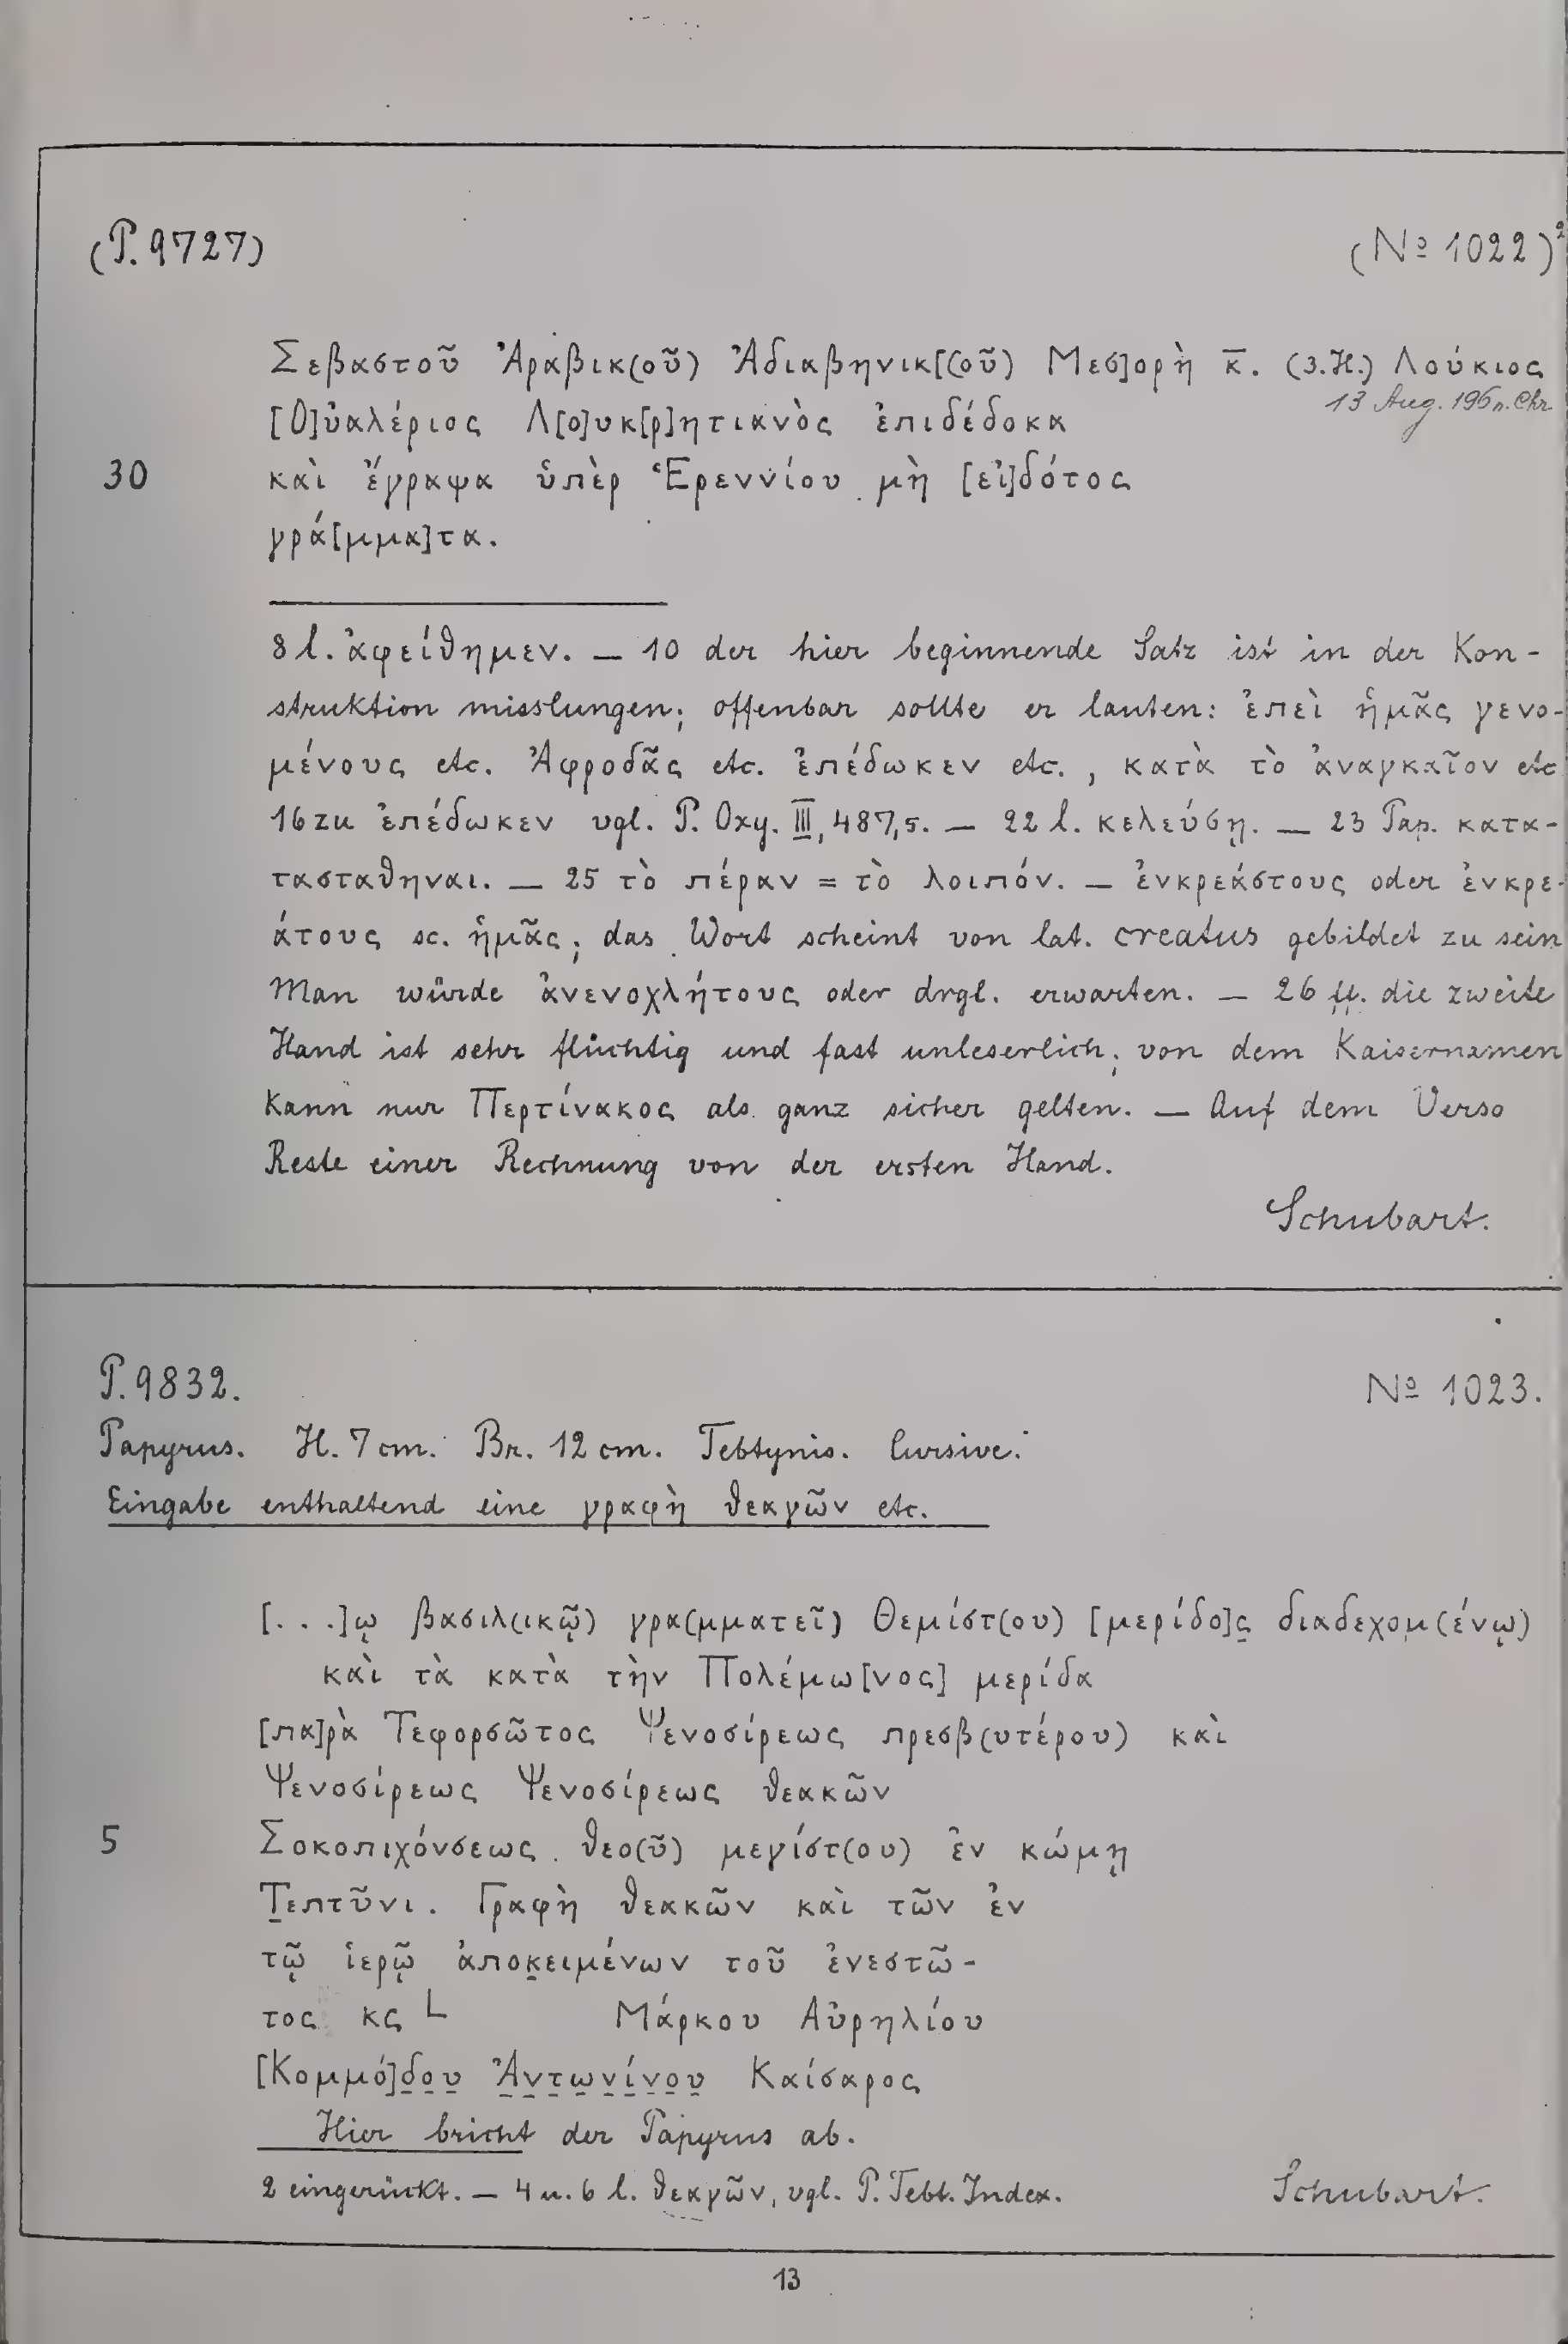 (P. 9727)
(No 1022)²
Σεβαστοῦ Ἀραβικ(οῦ) Ἀδιαβηνικ[(οῦ) Μεσ]ορὴ κ̅. (3.H.) Λούκιος
13 Aug. 196 n. Chr.
[Ο]ὐαλέριος Λ[ο]υκ[ρ]ητιανὸς ἐπιδέδοκα
30 καὶ ἔγραψα ὑπὲρ Ἑρεννίου μὴ [εἰ]δότος
γρά[μμα]τα.
8 l. ἀφείθημεν. — 10 der hier beginnende Satz ist in der Kon-
struktion misslungen; offenbar sollte er lauten: ἐπεὶ ἡμᾶς γενο-
μένους etc. Ἀφροδᾶς etc. ἐπέδωκεν etc., κατὰ τὸ ἀναγκαῖον etc
16 zu ἐπέδωκεν vgl. P. Oxy. III, 487,5. — 22 l. κελεύσῃ. — 23 Pap. κατα-
τασταθηναι. — 25 τὸ πέραν = τὸ λοιπόν. — ἐνκρεάστους oder ἐνκρε-
άτους sc. ἡμᾶς; das Wort scheint von lat. creatus gebildet zu sein
Man würde ἀνενοχλήτους oder drgl. erwarten. — 26 ff. die zweite
Hand ist sehr flüchtig und fast unleserlich; von dem Kaisernamen
kann nur Περτίνακος als ganz sicher gelten. — Auf dem Verso
Reste einer Rechnung von der ersten Hand.
Schubart.
P. 9832.
No 1023.
Papyrus. H. 7 cm. Br. 12 cm. Tebtynis. Cursive.
Eingabe enthaltend eine γραφὴ θεαγῶν etc.
[...]ῳ βασιλ(ικῷ) γρα(μματεῖ) Θεμίστ(ου) [μερίδο]ς̣ διαδεχομ(ένῳ)
καὶ τὰ κατὰ τὴν Πολέμω[νος] μερίδα
[πα]ρὰ Τεφορσῶτος Ψενοσίρεως πρεσβ(υτέρου) καὶ
Ψενοσίρεως Ψενοσίρεως θεακῶν
5 Σοκοπιχόνσεως θεο(ῦ) μεγίστ(ου) ἐν κώμῃ
Τ̣επτῦνι. Γραφὴ θεακῶν καὶ τῶν ἐν
τῷ ἱερῷ ἀποκ̣ειμένων τοῦ ἐνεστῶ-
τος κς L Μάρκου Αὐρηλίου
[Κομμό]δ̣ο̣υ̣ Ἀ̣ν̣τ̣ω̣ν̣ί̣ν̣ο̣υ̣ Καίσαρος
Hier bricht der Papyrus ab.
2 eingerückt. — 4 u. 6 l. θεαγῶν, vgl. P. Tebt. Index.
Schubart.
13